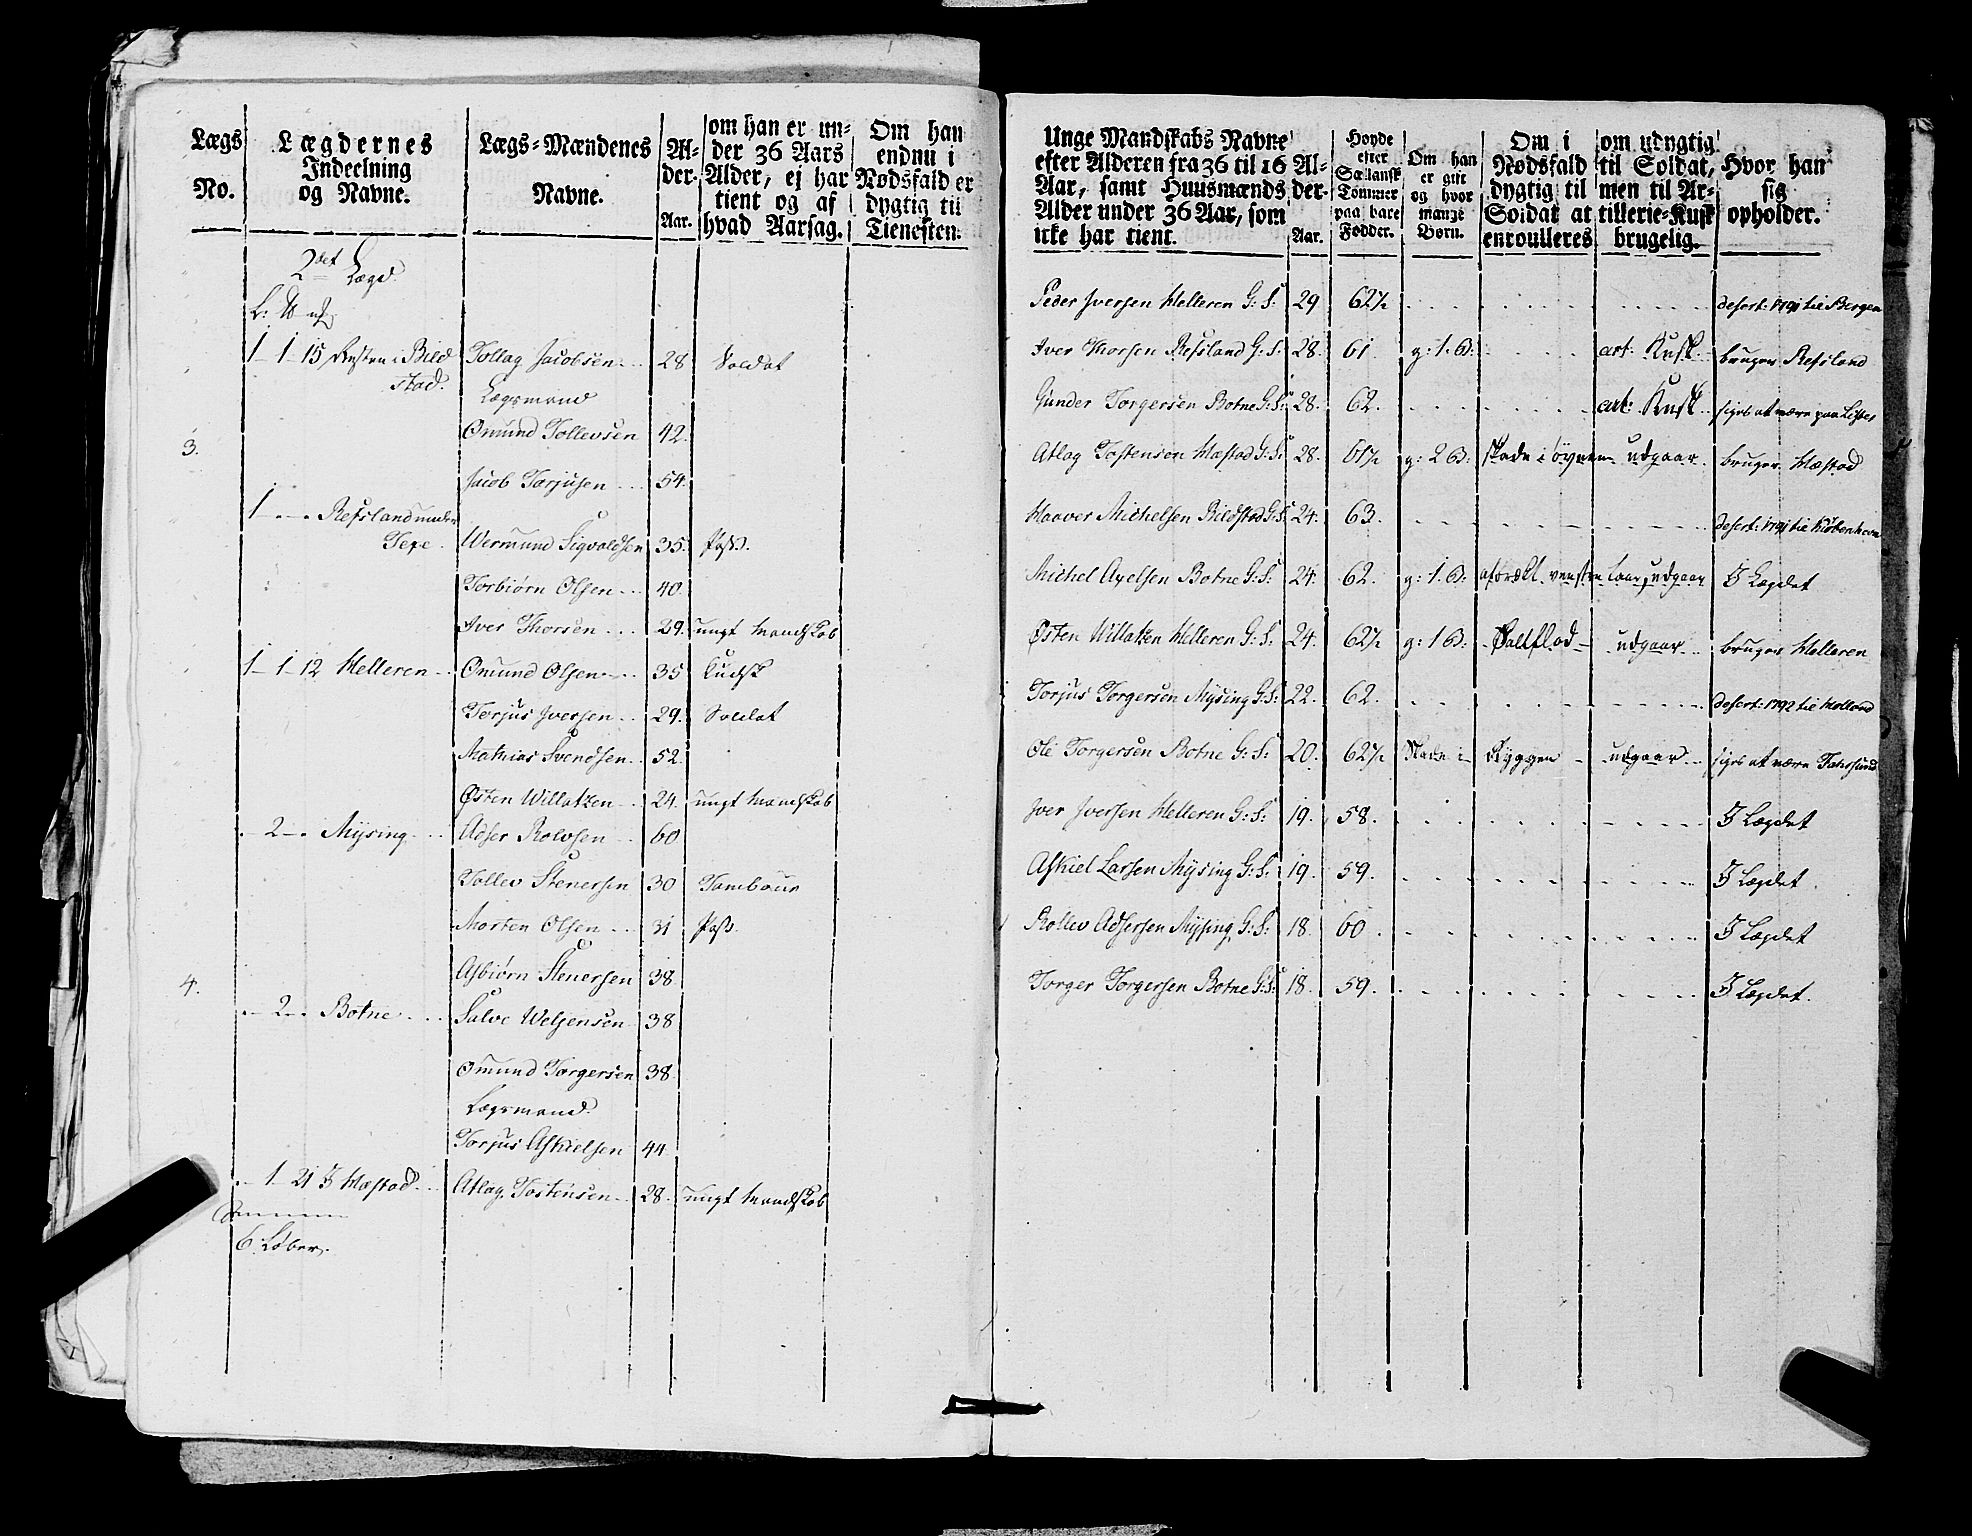 Lægs No. | Lægdernes Indeelning og Navne. | Lægs=Mændenes Navne. | Al=der. Aar. | om han er un=der 36 Aars Alder, ej har tient og af hvad Aarsag. | Om han endnu i Nødsfald er dygtig til Tienesten.
2det Lægd.
1 1 15 Resten i Bildstad. | Tollag Jacobsen | 28 | Soldat
Lægsmand
Omund Tollevsen | 42.
3.
Jacob Torjusen | 54.
1 Refsland under Texe. | Wermund Sigvaldsen | 35. | Pass.
Torbiørn Olsen | 40.
Iver Thorsen | 29. | ungt Mandskab
1 1 12 Helleren | Omund Olsen | 35 | Kudsk
Terjus Iversen | 29. | Soldat
Mathias Svendsen | 52.
Østen Willatzen | 24. | ungt Mandskab
2 Mysing | Adser Rolvsen | 60
Tollev Stenersen | 30 | Tambour
Morten Olsen | 31 | Pass.
Asbiørn Stenersen | 38.
4.
2 Botne | Salve Welsensen | 38
Omund Torgersen | 38.
Lægsmand.
Torjus Askielsen | 44.
1 21 I Hæstad | Atlag Tostensen | 28. | ungt Mandskab
6. Løber.
Unge Mandskabs Navne efter Alderen fra 36 til 16 Aar, samt Huusmænds Alder under 36 Aar, som icke har tient. | Al=der. Aar. | Høyde efter Sællansk Tommer paa bare Fødder. | Om han er gift og hvor mange Børn. | Om i Nødsfald dygtig til Soldat at enroulleres | om udygtig til Soldat, men til Ar=tillerie=Kusk brugelig. | Hvor han sig opholder.
Peder Iversen Helleren G: S: | 29 | 62½ | desert: 1791 til Bergen
Iver Thorsen Refsland G: S: | 28. | 61 | g: 1. B: | art: Kusk | bruger Refsland
Gunder Torgersen Botne G: S: | 28. | 62. | art: Kusk | siges at være paa Lister
Atlag Tostensen Hæstad G: S: | 28. | 61½ | g: 2 B: | skade i øynene | udgaar | bruger Hæstad
Haaver Michelsen Bildstad G: S: | 24. | 63. | desert: 1791 til Kiøbenhavn
Michel Axelsen Botne G: S: | 24. | 62. | g: 1. B: | afbrækt venstre Laar, udgaar | I Lægdet
Østen Willatzen Helleren G: S: | 24. | 62½ | g: 1 B: | Saltflod | udgaar | bruger Helleren
Torjus Torgersen Mysing G: S: | 22. | 62. | desert: 1792 til Holland
Ole Torgersen Botne G: S: | 20. | 62½ | Skade i Ryggen | udgaar | siges at være Fahrsund
Iver Iversen Helleren G: S: | 19. | 58. | I Lægdet
Askiel Larsen Mysing G: S: | 19. | 59. | I Lægdet
Rollev Adsersen Mysing G: S: | 18. | 60 | I Lægdet
Torger Torgersen Botne G: S: | 18. | 59. | I Lægdet.